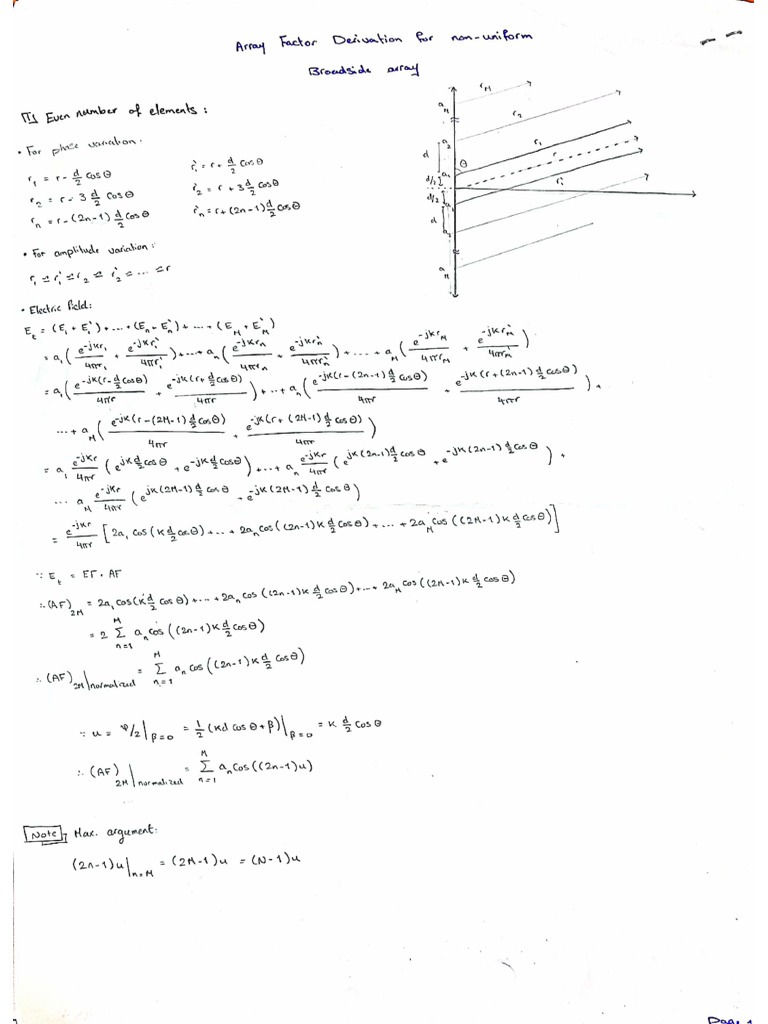 Array Factor Derivation for non-uniform
Broadside array
[1] Even number of elements:
• For phase variation:
r₁ = r - d/2 cosθ    r₁` = r + d/2 cosθ
r₂ = r - 3 d/2 cosθ    r₂` = r + 3 d/2 cosθ
rₙ = r - (2n-1) d/2 cosθ    rₙ` = r + (2n-1) d/2 cosθ
• For amplitude variation:
r₁ ≃ r₁` ≃ r₂ ≃ r₂` ≃ ... ≃ r
• Electric field:
E_t = (E₁ + E₁`) + ... + (Eₙ + Eₙ`) + ... + (E_M + E_M`)
= a₁ (e^(-jkr₁)/4πr₁ + e^(-jkr₁`)/4πr₁`) + ... + aₙ (e^(-jkrₙ)/4πrₙ + e^(-jkrₙ`)/4πrₙ`) + ... + a_M (e^(-jkr_M)/4πr_M + e^(-jkr_M`)/4πr_M`)
= a₁ (e^(-jk(r - d/2 cosθ))/4πr + e^(-jk(r + d/2 cosθ))/4πr) + ... + aₙ (e^(-jk(r - (2n-1) d/2 cosθ))/4πr + e^(-jk(r + (2n-1) d/2 cosθ))/4πr) +
... + a_M (e^(-jk(r - (2M-1) d/2 cosθ))/4πr + e^(-jk(r + (2M-1) d/2 cosθ))/4πr)
= a₁ e^(-jkr)/4πr (e^(jk d/2 cosθ) + e^(-jk d/2 cosθ)) + ... + aₙ e^(-jkr)/4πr (e^(jk(2n-1) d/2 cosθ) + e^(-jk(2n-1) d/2 cosθ) +
... a_M e^(-jkr)/4πr (e^(jk(2M-1) d/2 cosθ) + e^(-jk(2M-1) d/2 cosθ))
= e^(-jkr)/4πr [2a₁ cos(k d/2 cosθ) + ... + 2aₙ cos((2n-1) k d/2 cosθ) + ... + 2a_M cos((2M-1) k d/2 cosθ)]
∵ E_t = EF . AF
∴ (AF)_2M = 2a₁ cos(k d/2 cosθ) + ... + 2aₙ cos((2n-1) k d/2 cosθ) + ... + 2a_M cos((2M-1) k d/2 cosθ)
= 2 Σ_(n=1)^M aₙ cos((2n-1) k d/2 cosθ)
∴ (AF)_2M|normalized = Σ_(n=1)^M aₙ cos((2n-1) k d/2 cosθ)
∵ u = φ/2|_(β=0) = 1/2 (kd cosθ + β)|_(β=0) = k d/2 cosθ
∴ (AF)_2M|normalized = Σ_(n=1)^M aₙ cos((2n-1)u)
Note Max. argument:
(2n-1)u|_(n=M) = (2M-1)u = (N-1)u
r_M
a_M
r₂
a₂
d
r₁
θ
r
a₁
d/2
d/2
r₁`
a₁
d
a₂
a_M
Page 1